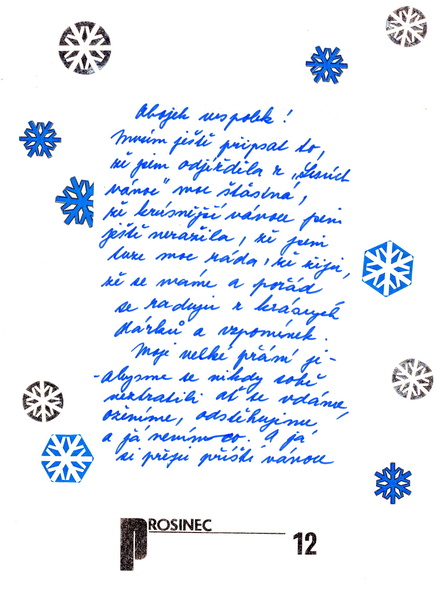 Ahojek vespolek!
Musím ještě připsat to,
že jsem odjížděla z „Lesních
vánoc" moc šťastná,
že krásnější vánoce jsem
ještě nezažila, že jsem
tuze moc ráda, že žiji,
že se máme a pořád
se raduji z krásných
dárků a vzpomínek.
Moje velké přání je-
-abysme se nikdy sobě
neztratili ať se vdáme,
oženíme, odstěhujeme
a já nevím co. A já
si přeju příští vánoce
PROSINEC
12